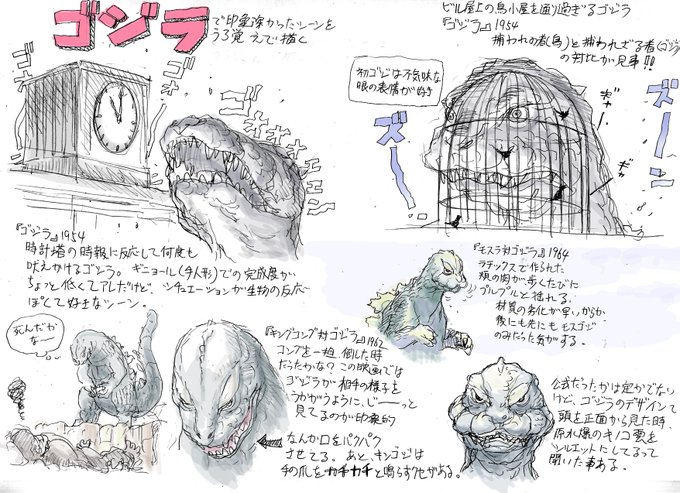 ゴジラ
で印象深かったシーンを
うろ覚えで描く
ゴォ
ゴォ
ゴォ
『ゴジラ』1954
時計塔の時報に反応して何度も
吠えかけるゴジラ。ギニョール(手人形)での完成度が
ちょっと低くてアレだけど、シチュエーションが生物の反応
ぽくて好きなシーン。
ビル屋上の鳥小屋を通り過ぎるゴジラ
『ゴジラ』1954
捕われの者(鳥)と捕われざる者(ゴジラ)
の対比が見事!!
初ゴジは不気味な
眼の表情が好き
ギャー
ギャ
ズーン
ズーン
『モスラ対ゴジラ』1964
ラテックスで作られた
頬の肉が歩くたびに
プルプルと揺れる。
材質の劣化が早いからか
後にも先にもモスゴジ
のみだった気がする。
死んだかな
なー
『キングコング対ゴジラ』1962
コングを一担倒した時
だったかな?この映画では
ゴジラが相手の様子を
うかがうように、じーーっと
見てるのが印象的
なんか口をパクパク
させてる。あと、キンゴジは
手の爪をカチカチと鳴らすクセがある。
公式だったかは定かでない
けど、ゴジラのデザインて
頭を正面から見た時、
原水爆のキノコ雲を
シルエットにしてるって
聞いた事ある。